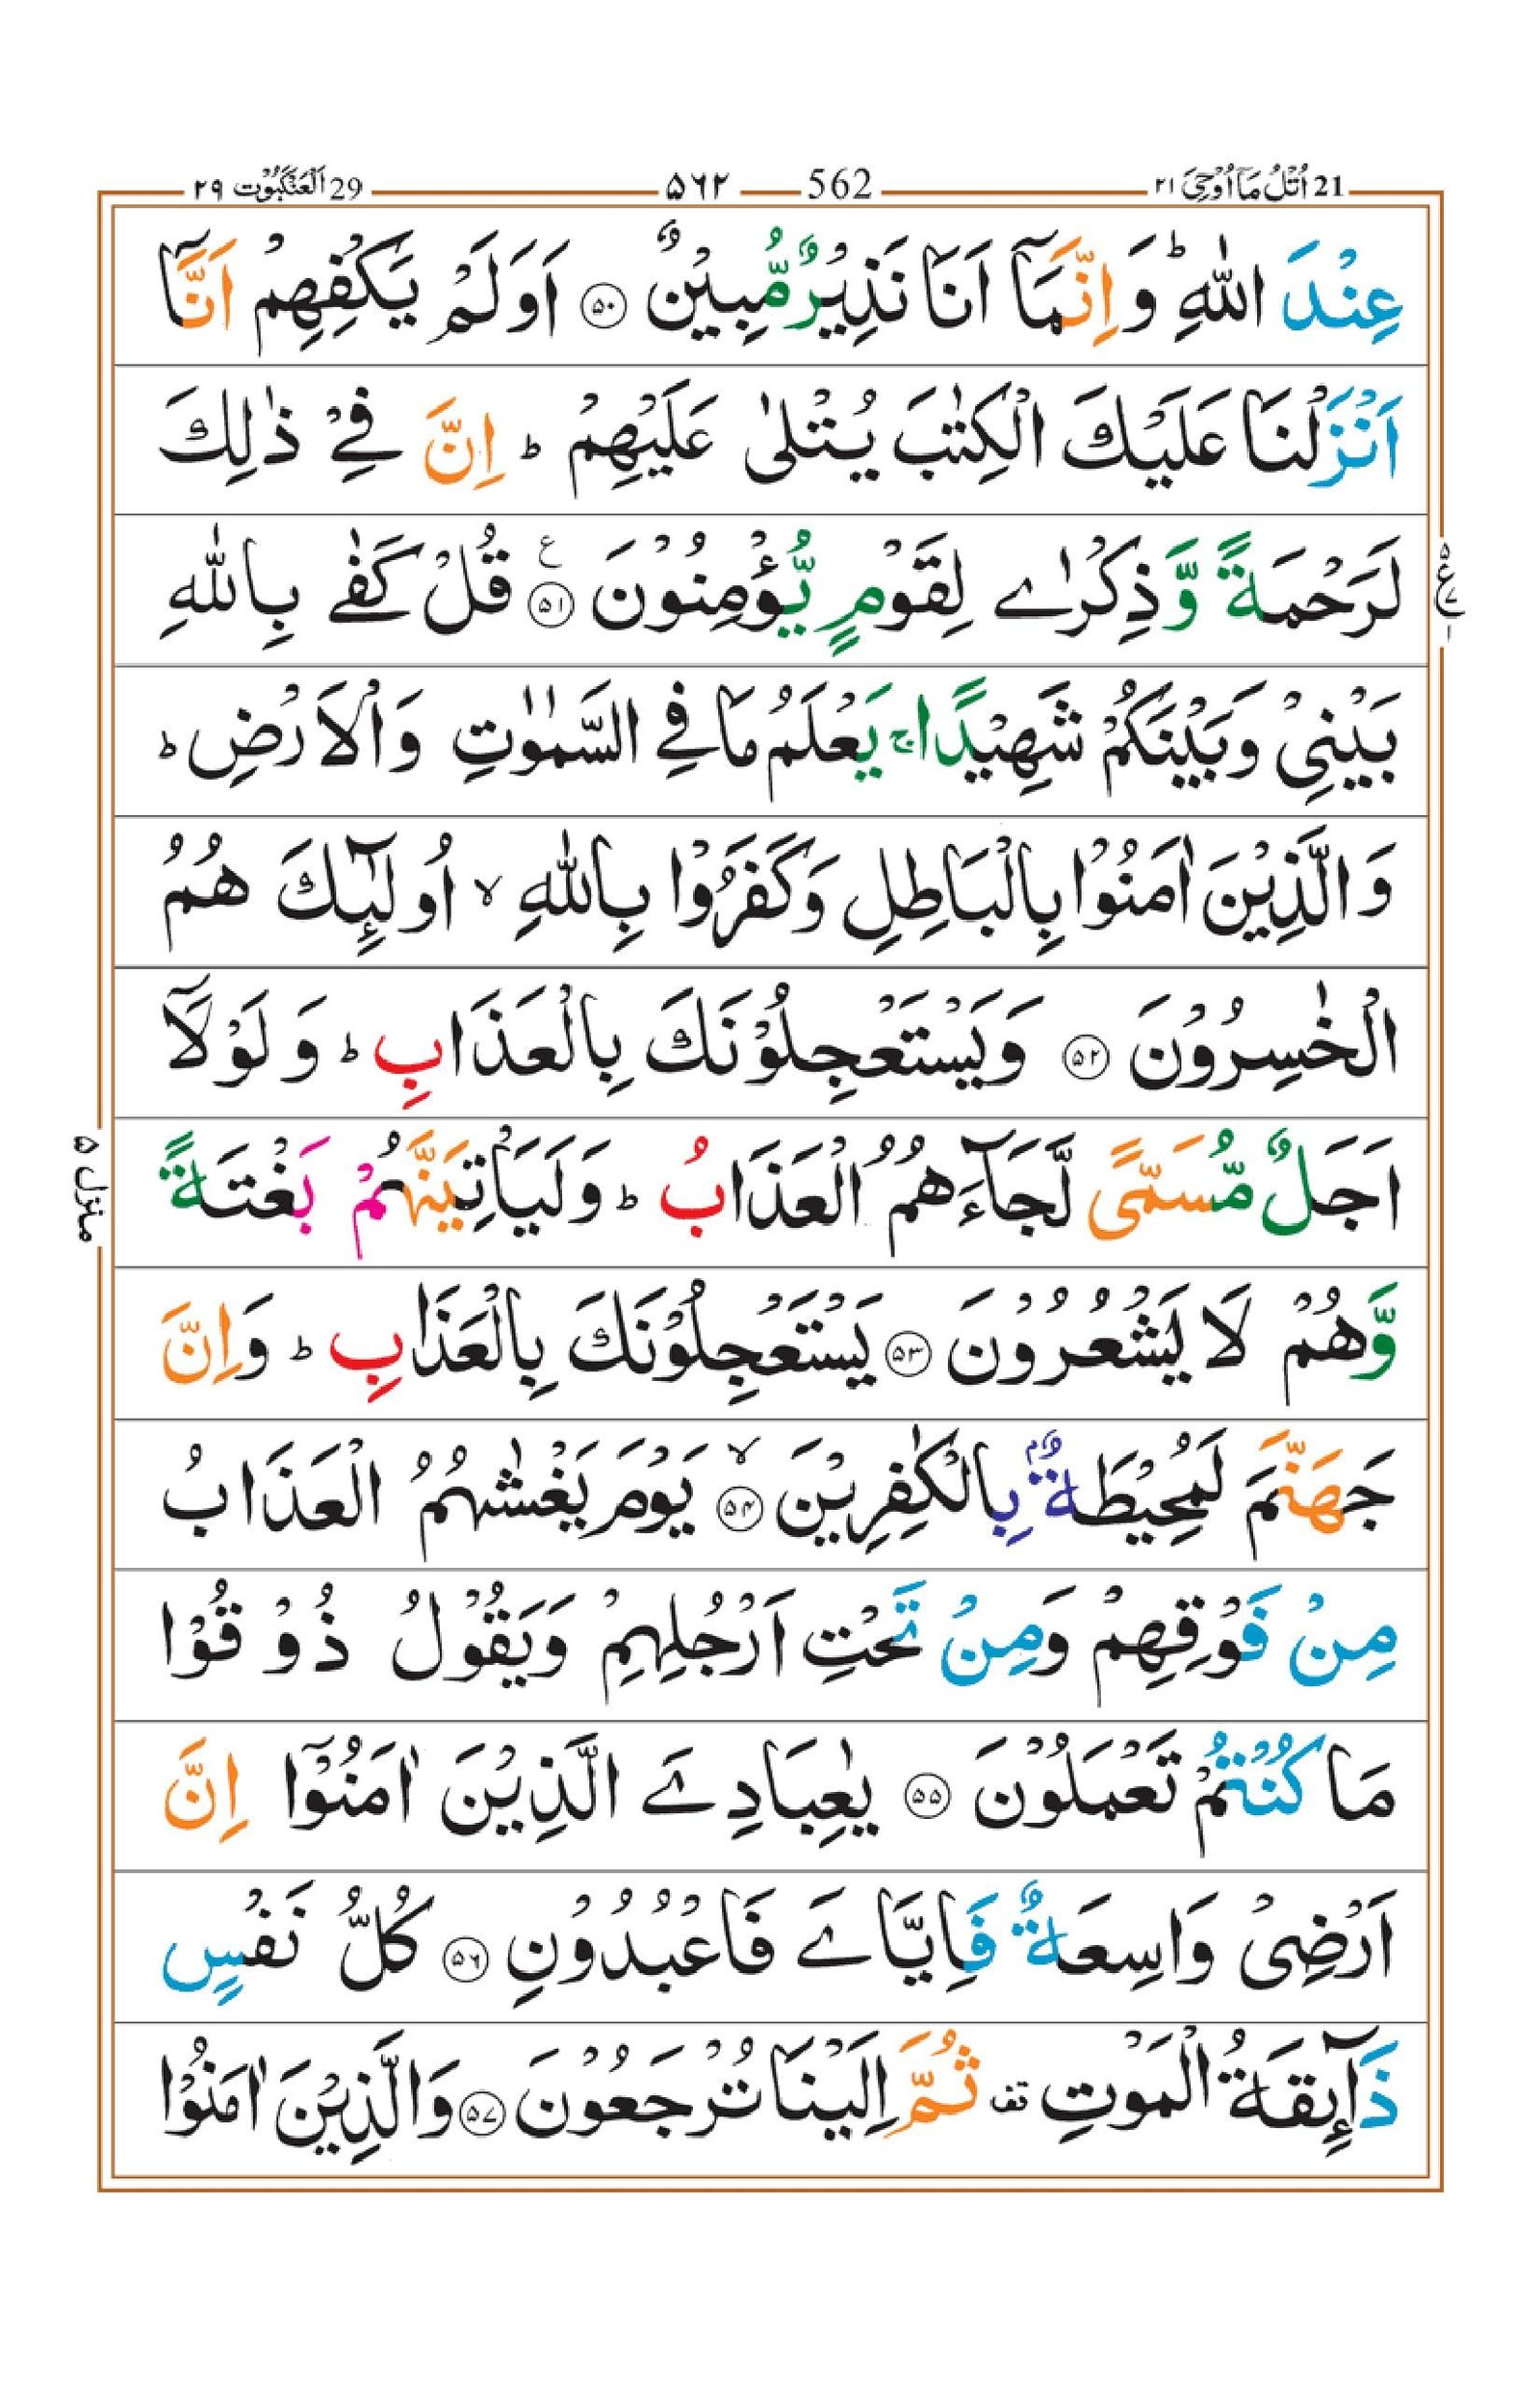 21 اُتْلُ مَاۤ اُوْحِیَ ۲۱ 562 ۵۶۲ 29 اَلْعَنْكَبُوْت ۲۹
عِنْدَ اللّٰهِؕ وَ اِنَّمَاۤ اَنَا نَذِیْرٌ مُّبِیْنٌ ۝۵۰ اَوَلَمْ یَكْفِهِمْ اَنَّاۤ
اَنْزَلْنَا عَلَیْكَ الْكِتٰبَ یُتْلٰی عَلَیْهِمْؕ اِنَّ فِیْ ذٰلِكَ
لَرَحْمَةً وَّ ذِكْرٰی لِقَوْمٍ یُّؤْمِنُوْنَ ۝۵۱ ع قُلْ كَفٰی بِاللّٰهِ
بَیْنِیْ وَبَیْنَكُمْ شَهِیْدًاۚ یَعْلَمُ مَا فِی السَّمٰوٰتِ وَالْاَرْضِؕ
وَالَّذِیْنَ اٰمَنُوْا بِالْبَاطِلِ وَكَفَرُوْا بِاللّٰهِۙ اُولٰٓىِٕكَ هُمُ
الْخٰسِرُوْنَ ۝۵۲ وَیَسْتَعْجِلُوْنَكَ بِالْعَذَابِؕ وَلَوْلَاۤ
اَجَلٌ مُّسَمًّی لَّجَآءَهُمُ الْعَذَابُؕ وَلَیَاْتِیَنَّهُمْ بَغْتَةً
وَّهُمْ لَا یَشْعُرُوْنَ ۝۵۳ یَسْتَعْجِلُوْنَكَ بِالْعَذَابِؕ وَاِنَّ
جَهَنَّمَ لَمُحِیْطَةٌۢ بِالْكٰفِرِیْنَۙ ۝۵۴ یَوْمَ یَغْشٰىهُمُ الْعَذَابُ
مِنْ فَوْقِهِمْ وَمِنْ تَحْتِ اَرْجُلِهِمْ وَیَقُوْلُ ذُوْقُوْا
مَا كُنْتُمْ تَعْمَلُوْنَ ۝۵۵ یٰعِبَادِیَ الَّذِیْنَ اٰمَنُوْۤا اِنَّ
اَرْضِیْ وَاسِعَةٌ فَاِیَّایَ فَاعْبُدُوْنِ ۝۵۶ كُلُّ نَفْسٍ
ذَآىِٕقَةُ الْمَوْتِ ۫ قف ثُمَّ اِلَیْنَا تُرْجَعُوْنَ ۝۵۷ وَالَّذِیْنَ اٰمَنُوْا
۵ ع ۷ ۱
منزل ۵